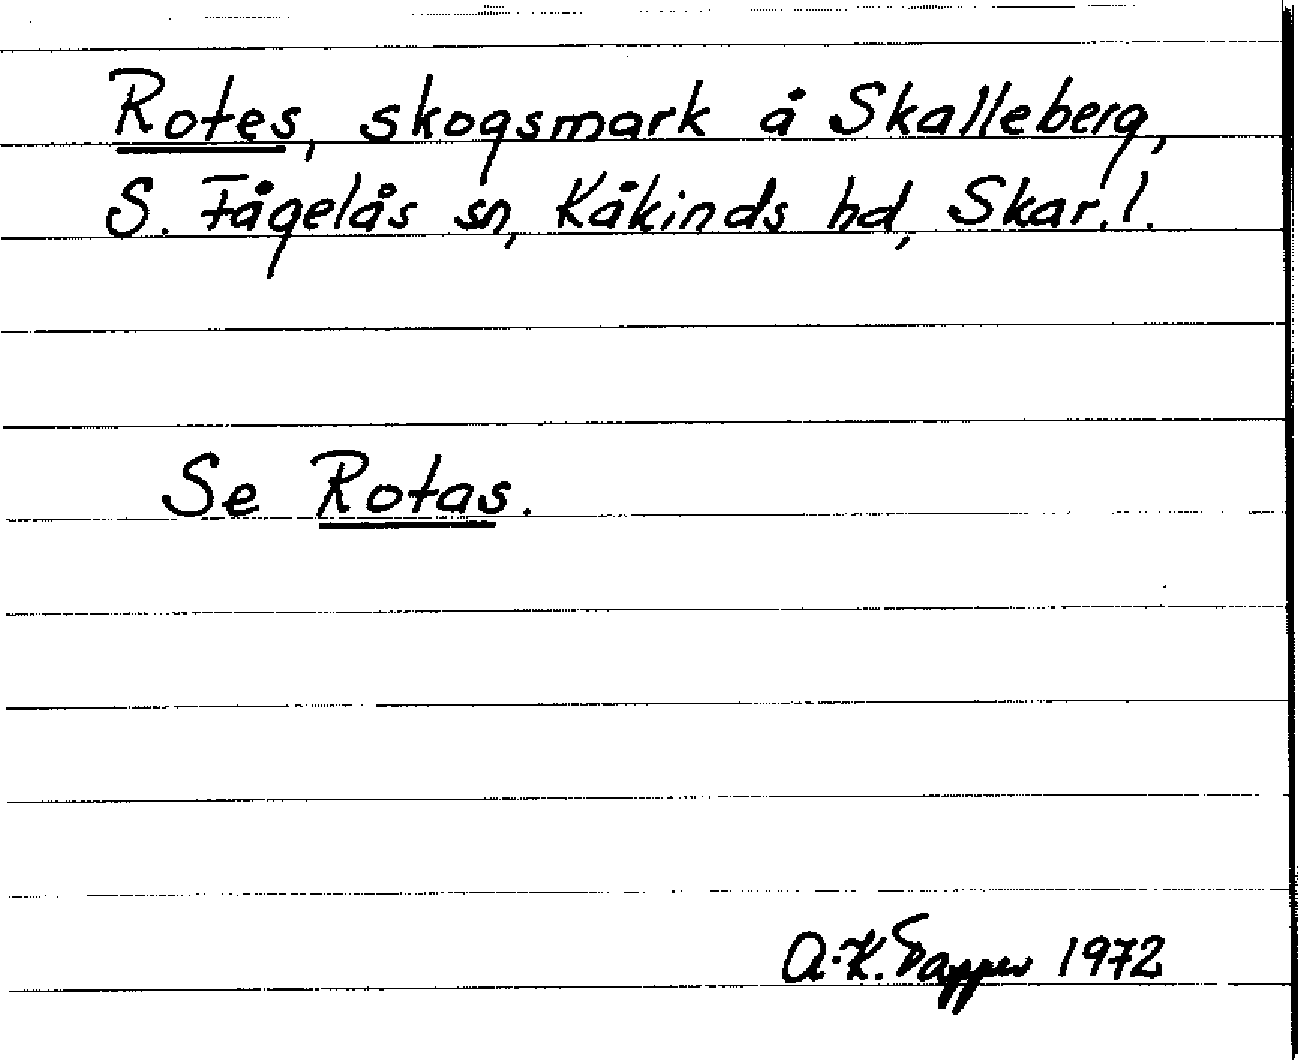 Rotes, skogsmark å Skalleberg,
S. Fågelås sn, Kåkinds hd, Skar. l.
Se Rotas.
A-K. 1972